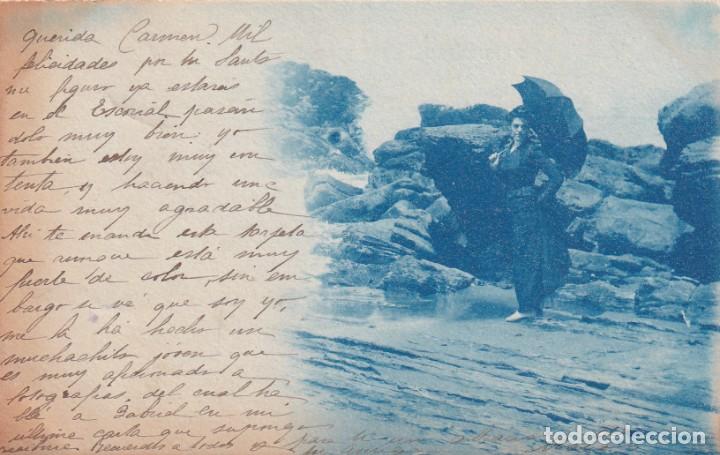 Querida Carmen. Mil
felicidades por tu Santo
me figuro ya estarás
en el Escorial pasán
dolo muy bien; yo
tambien estoy muy con
tenta, y haciendo una
vida muy agradable
Ahí te mando esta tarjeta
que aunque está muy
fuerte de color, sin em
bargo se vé que soy yo,
me la há hecho un
muchachito joven que
es muy aficionado a
fotografías, del cual ha
blé a Gabriel en mi
última carta que supongo
recuerdos a todos para ti un
todocoleccion.net